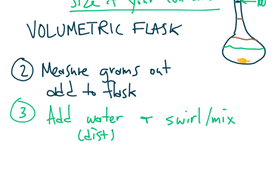 size of your
VOLUMETRIC FLASK
② Measure grams out
add to flask
③ Add water + swirl/mix
(dist)